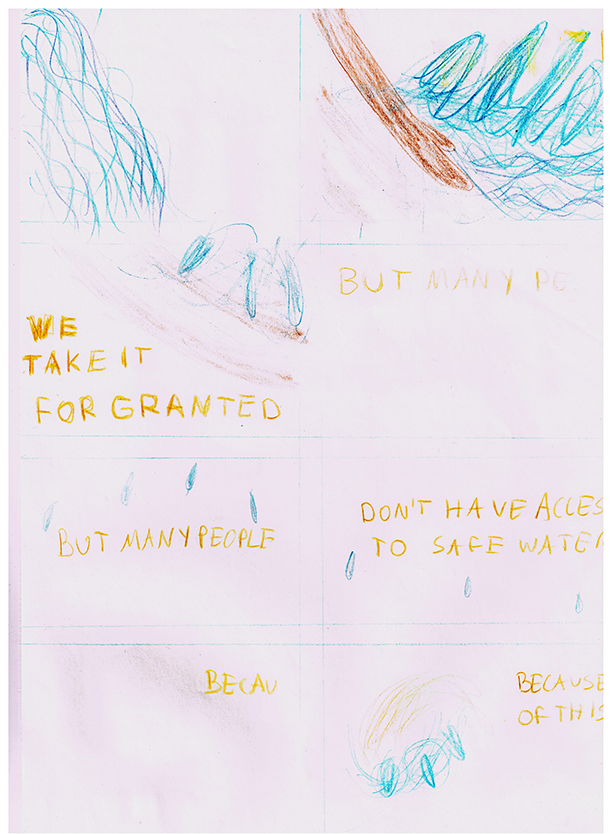 WE
TAKE IT
FOR GRANTED
BUT MANY PE
BUT MANY PEOPLE
DON'T HAVE ACCES
TO SAFE WATER
BECAU
BECAUSE
OF THIS